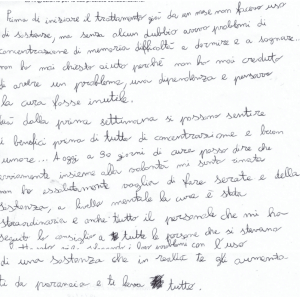 Prima di iniziare il trattamento già da un mese non facevo uso
di sostanze, ma senza alcun dubbio avevo problemi di
concentrazione di memoria difficoltà a dormire e a sognare.
non ho mai chiesto aiuto perché non ho mai creduto
di avere un problema, una dipendenza e pensavo
la cura fosse inutile.
già dalla prima settimana si possono sentire
i benefici prima di tutto di concentrazione e buon
umore.. A oggi a 90 giorni di cura posso dire che
ovviamente insieme alla volontà mi sento rinata
non ho assolutamente voglia di fare serate e della
sostanza, a livello mentale la cura è stata
straordinaria e anche tutto il personale che mi ha
seguito lo consiglio a tutte le persone che si trovano
problemi con l'uso
di una sostanza che in realtà te gli aumenta.
ti da paranoia e ti leva tutto.